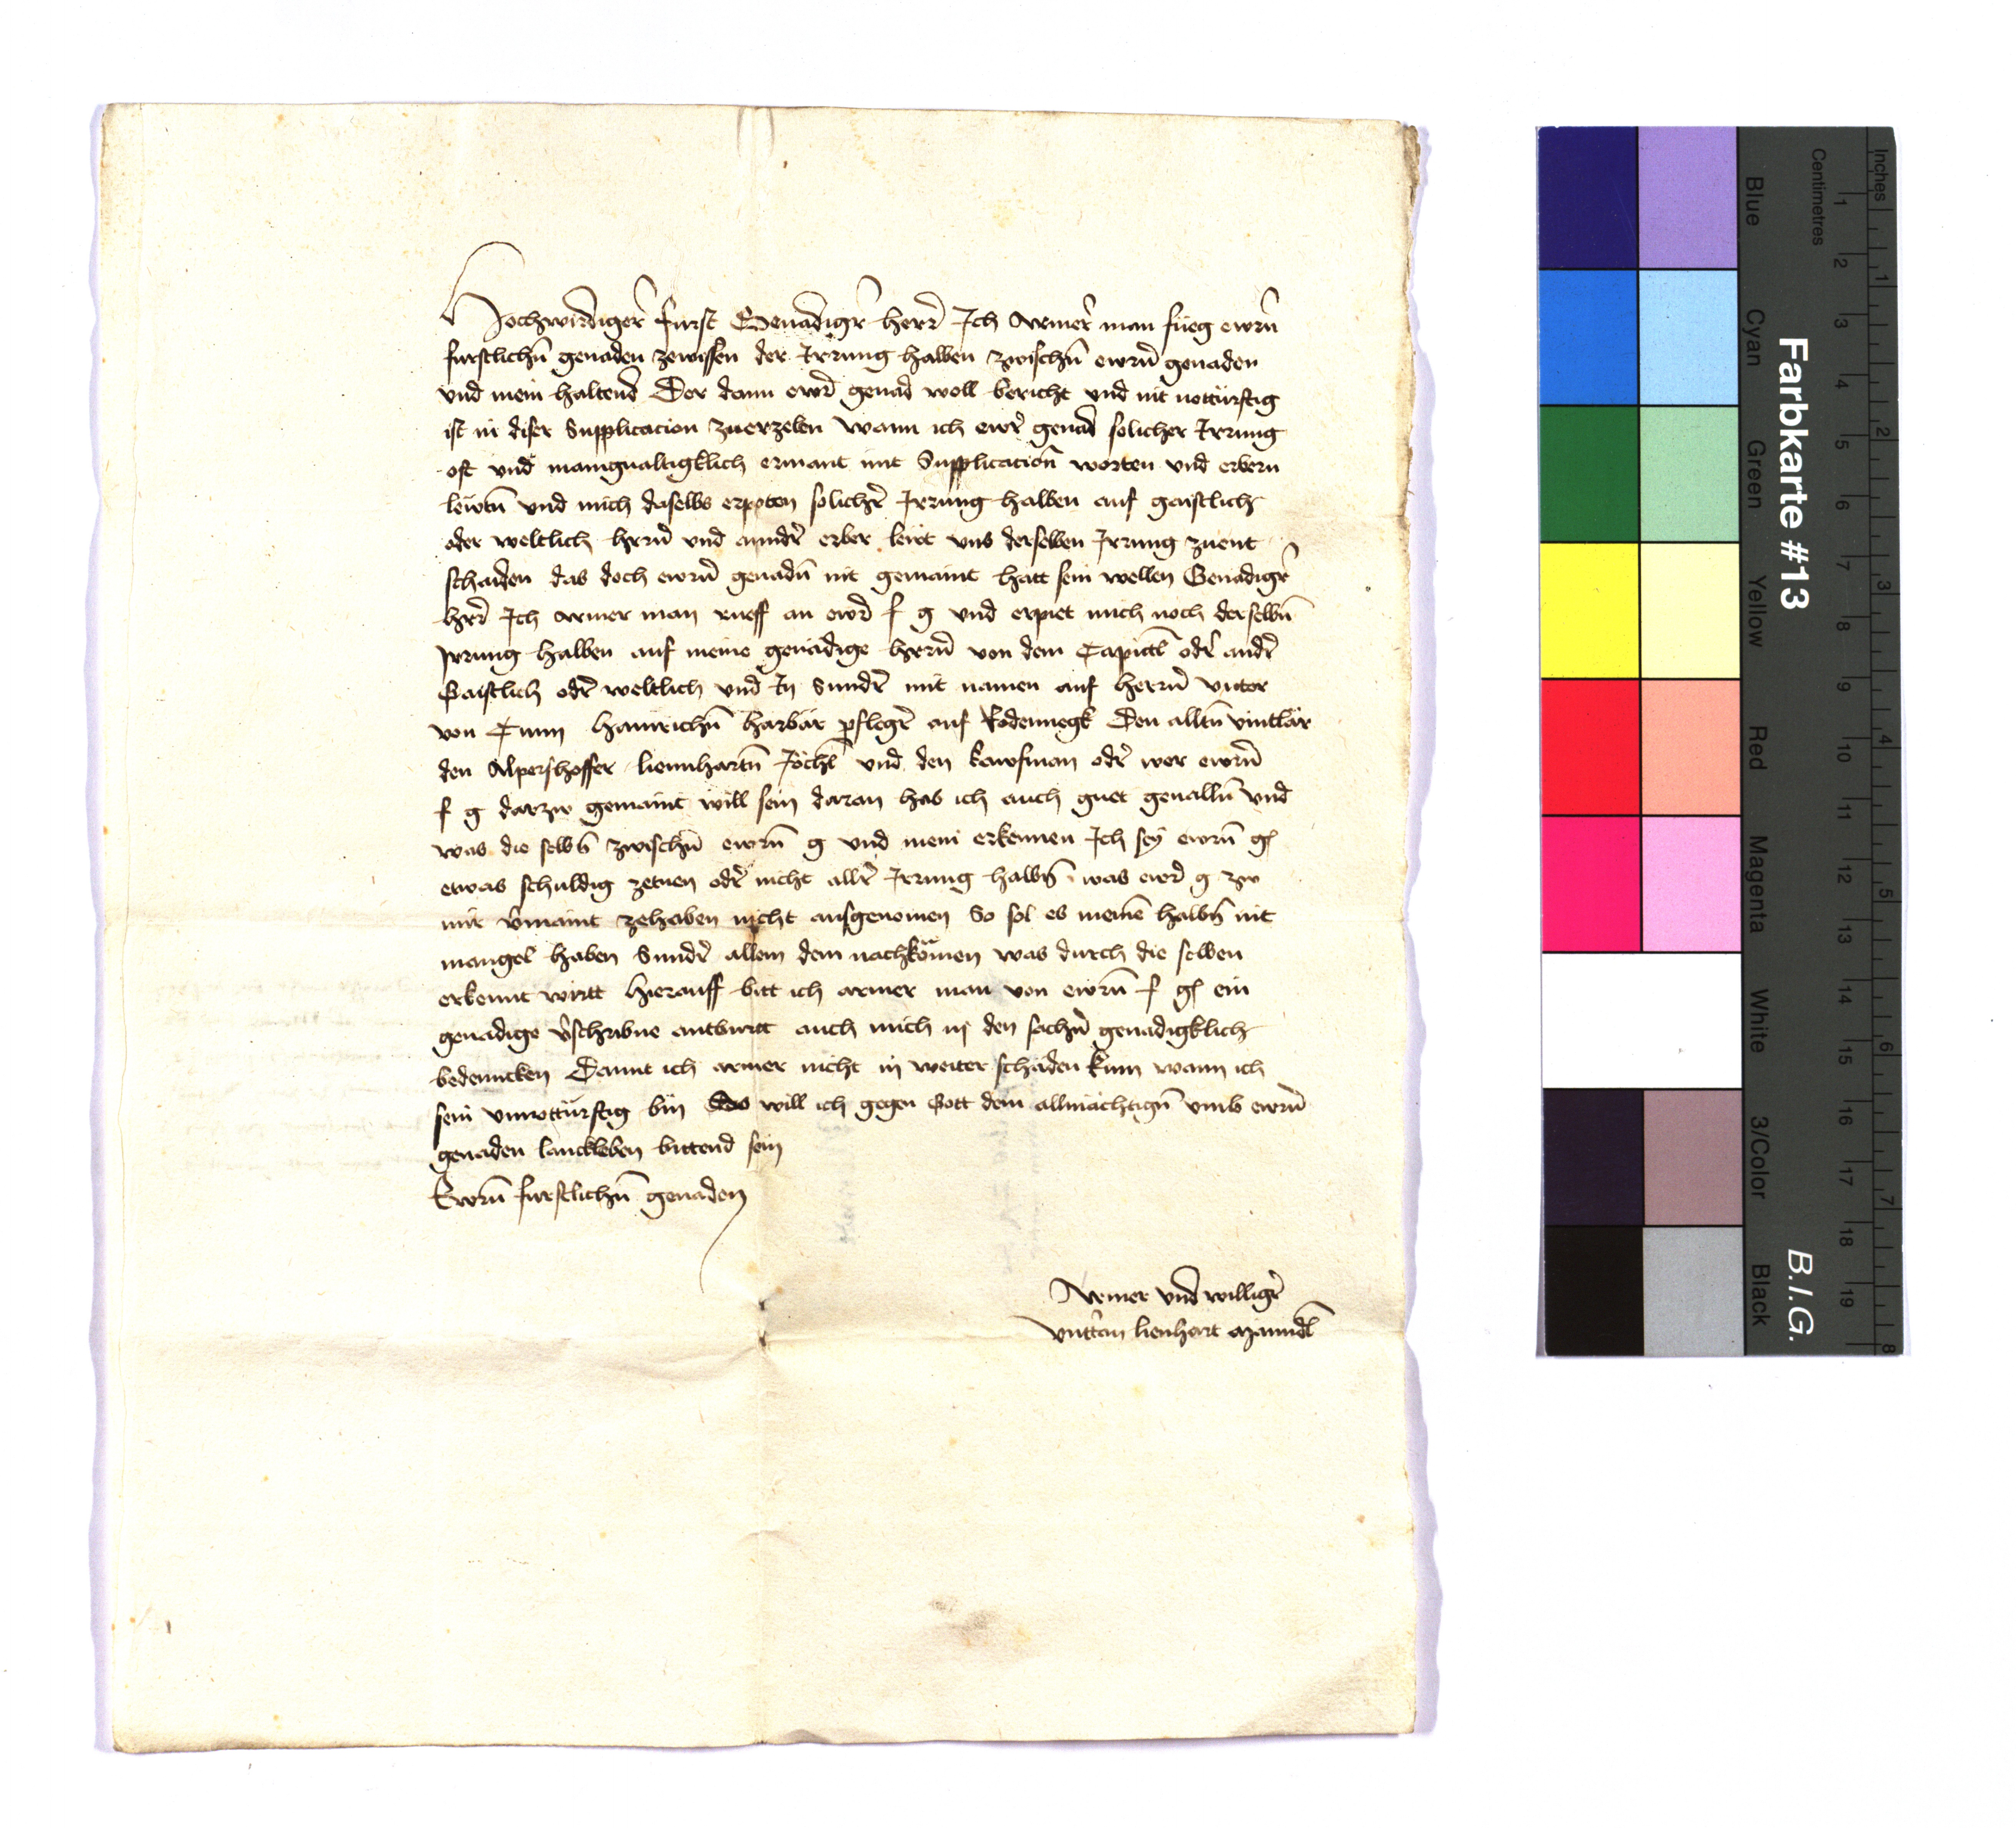 Hochwirdiger̄ furst Genadigr̄ herr̄ Ich Armer̄ man fueg ewrn̄
furstlichn̄ genaden zewissen der Irrung halben zwischn̄ ewrn̄ genaden
vnd mein haltend Der dann ewr̄ genad woll bericht vnd nit notturftig
ist in diser Supplicacion zuerzelen Wann ich ewr̄ genad solicher Irrung
oft vnd manigualtigklich ermant mit Supplication̄ worten vnd erbern
lewtn̄ vnd mich daselbs erpoten solichr̄ Irrung halben auf gaistlich
oder weltlich hern̄ vnd anndr̄ erber lewt vns derselben Irrung zuent
schaiden das doch ewrn̄ genadn̄ nit gemaint hatt sein wellen Genadigr̄
herr̄ Ich armer man rueff an ewr̄ f g vnd erpiet mich noch derselbn̄
Irrung halben auf meine genädige hern̄ von dem Capittl̄ odr̄ andr̄
Gaistlich odr̄ weltlich vnd In Sundr̄ mit namen auf herrn̄ victor
von Tunn hainrichn̄ harbär pflegr̄ auf Rodennegk Den alltn̄ vintlär
den Alpershoffer liennhartn̄ Jöchl̄ vnd den kawfman odr̄ wer ewrn̄
f g darzw gemaint will sein daran hab ich auch guet geualln̄ vnd
was die selbn̄ zwischn̄ ewrn̄ g vnd mein erkennen Ich seÿ ewrn̄ g
etwas schuldig zetuen odr̄ nicht allr̄ Irrung halbn̄ was ewr̄ g zw
mir v̄maint zehaben nicht ausgenomen So sol es meinē halbn̄ nit
mangel haben Sundr̄ allem dem nachkömen was durch die selben
erkennt wirtt hierauff bitt ich armer man von ewrn̄ f g ein
genadige v̄schribne antwurtt auch mich in den sachn̄ genadigklich
bedenncken Damit ich armer nicht in weiter schäden kum wann ich
sein vnnotturftig bin Das will ich gegen Gott dem allmächtign̄ vmb ewrn̄
genaden lanckleben bittend sein
Ewrn̄ furstlichn̄ genaden
Armer vnd willigr̄
vntt̄an lienhart Manndl̄
Farbkarte #13
B.I.G.
Inches
Centimetres
1 2 3 4 5 6 7 8 9 10 11 12 13 14 15 16 17 18 19
1 2 3 4 5 6 7 8
Blue
Cyan
Green
Yellow
Red
Magenta
White
3/Color
Black